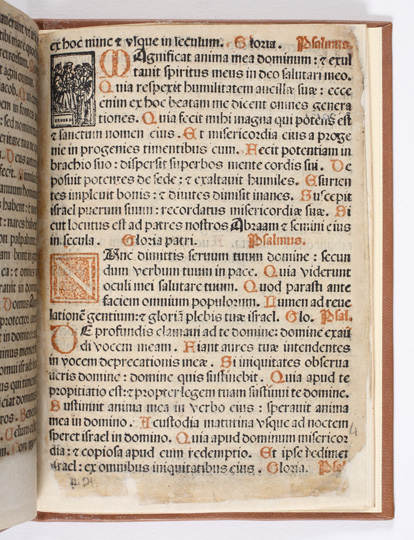 ex hoc nunc ⁊ vsque in seculum. Gloria. Psalmus.
Magnificat anima mea dominum: ⁊ exul
tauit spiritus meus in deo salutari meo.
Quia respexit humilitatem ancillæ suæ: ecce
enim ex hoc beatam me dicent omnes genera
tiones. Quia fecit mihi magna qui potens est
⁊ sanctum nomen eius. Et misericordia eius a proge
nie in progenies timentibus eum. Fecit potentiam in
brachio suo: dispersit superbos mente cordis sui. De
posuit potentes de sede: ⁊ exaltauit humiles. Esurien
tes impleuit bonis: ⁊ diuites dimisit inanes. Suscepit
israel puerum suum: recordatus misericordiæ suæ. Si
cut locutus est ad patres nostros Abraam ⁊ semini eius
in secula. Gloria patri. Psalmus.
Nunc dimittis seruum tuum domine: secun
dum verbum tuum in pace. Quia viderunt
oculi mei salutare tuum. Quod parasti ante
faciem omnium populorum. Lumen ad reue
lationē gentium: ⁊ gloriā plebis tuæ israel. Glo. Psal.
De profundis clamaui ad te domine: domine exau
di vocem meam. Fiant aures tuæ intendentes
in vocem deprecationis meæ. Si iniquitates obserua
ueris domine: domine quis sustinebit. Quia apud te
propitiatio est: ⁊ propter legem tuam sustinui te domine.
Sustinuit anima mea in verbo eius: sperauit anima
mea in domino. A custodia matutina vsque ad noctem
speret israel in domino. Quia apud dominum misericor
dia: ⁊ copiosa apud eum redemptio. Et ipse redimet
israel: ex omnibus iniquitatibus eius. Gloria. Psal